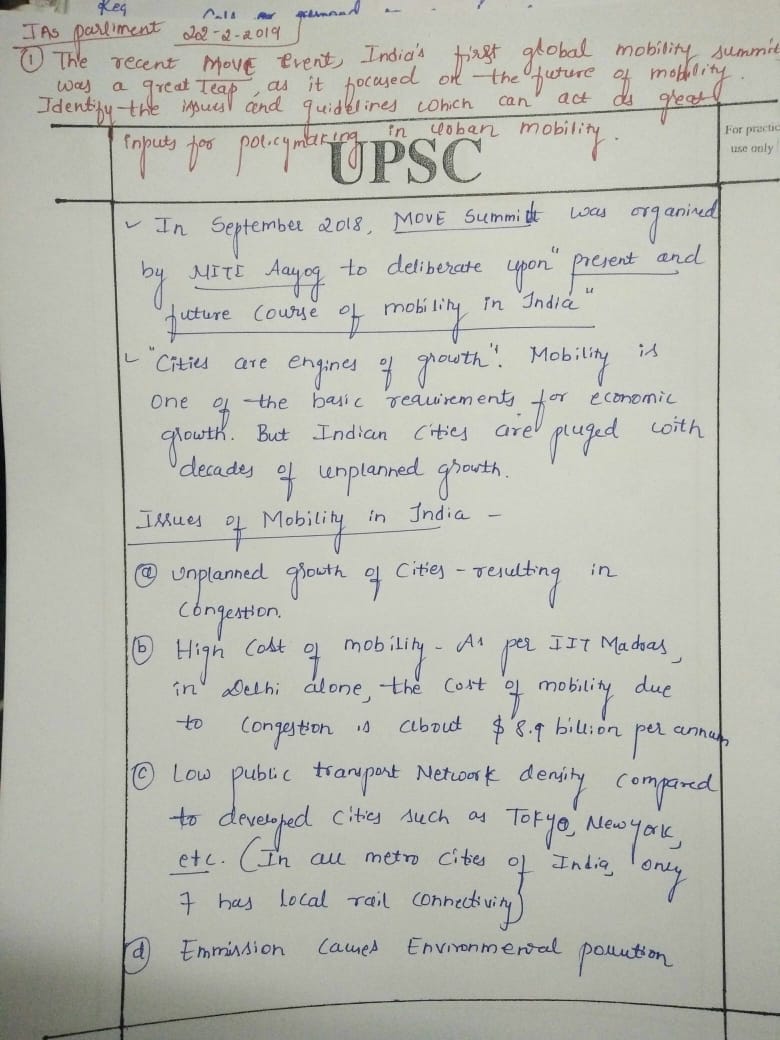 Req
IAs parliment 22-2-2019
① The recent MOVE Event, India's first global mobility summit
was a great Leap, as it focused on the future of mobility.
Identify the issues and guidelines which can act as great
inputs for policymaking in urban mobility.
For practic
use only
UPSC
✓ In September 2018, MOVE Summit was organised
by NITI Aayog to deliberate upon "present and
future course of mobility in India"
✓ "Cities are engines of growth". Mobility is
one of the basic requirements for economic
growth. But Indian Cities are pluged with
decades of unplanned growth.
Issues of Mobility in India -
ⓐ Unplanned growth of Cities - resulting in
Congestion.
ⓑ High Cost of mobility - As per IIT Madras,
in Delhi alone, the cost of mobility due
to Congestion is about $ 8.9 billion per annum
ⓒ Low public transport Network density compared
to developed Cities such as Tokyo, New york,
etc. (In all metro cities of India, only
7 has local rail connectivity)
ⓓ Emmission Causes Environmental pollution